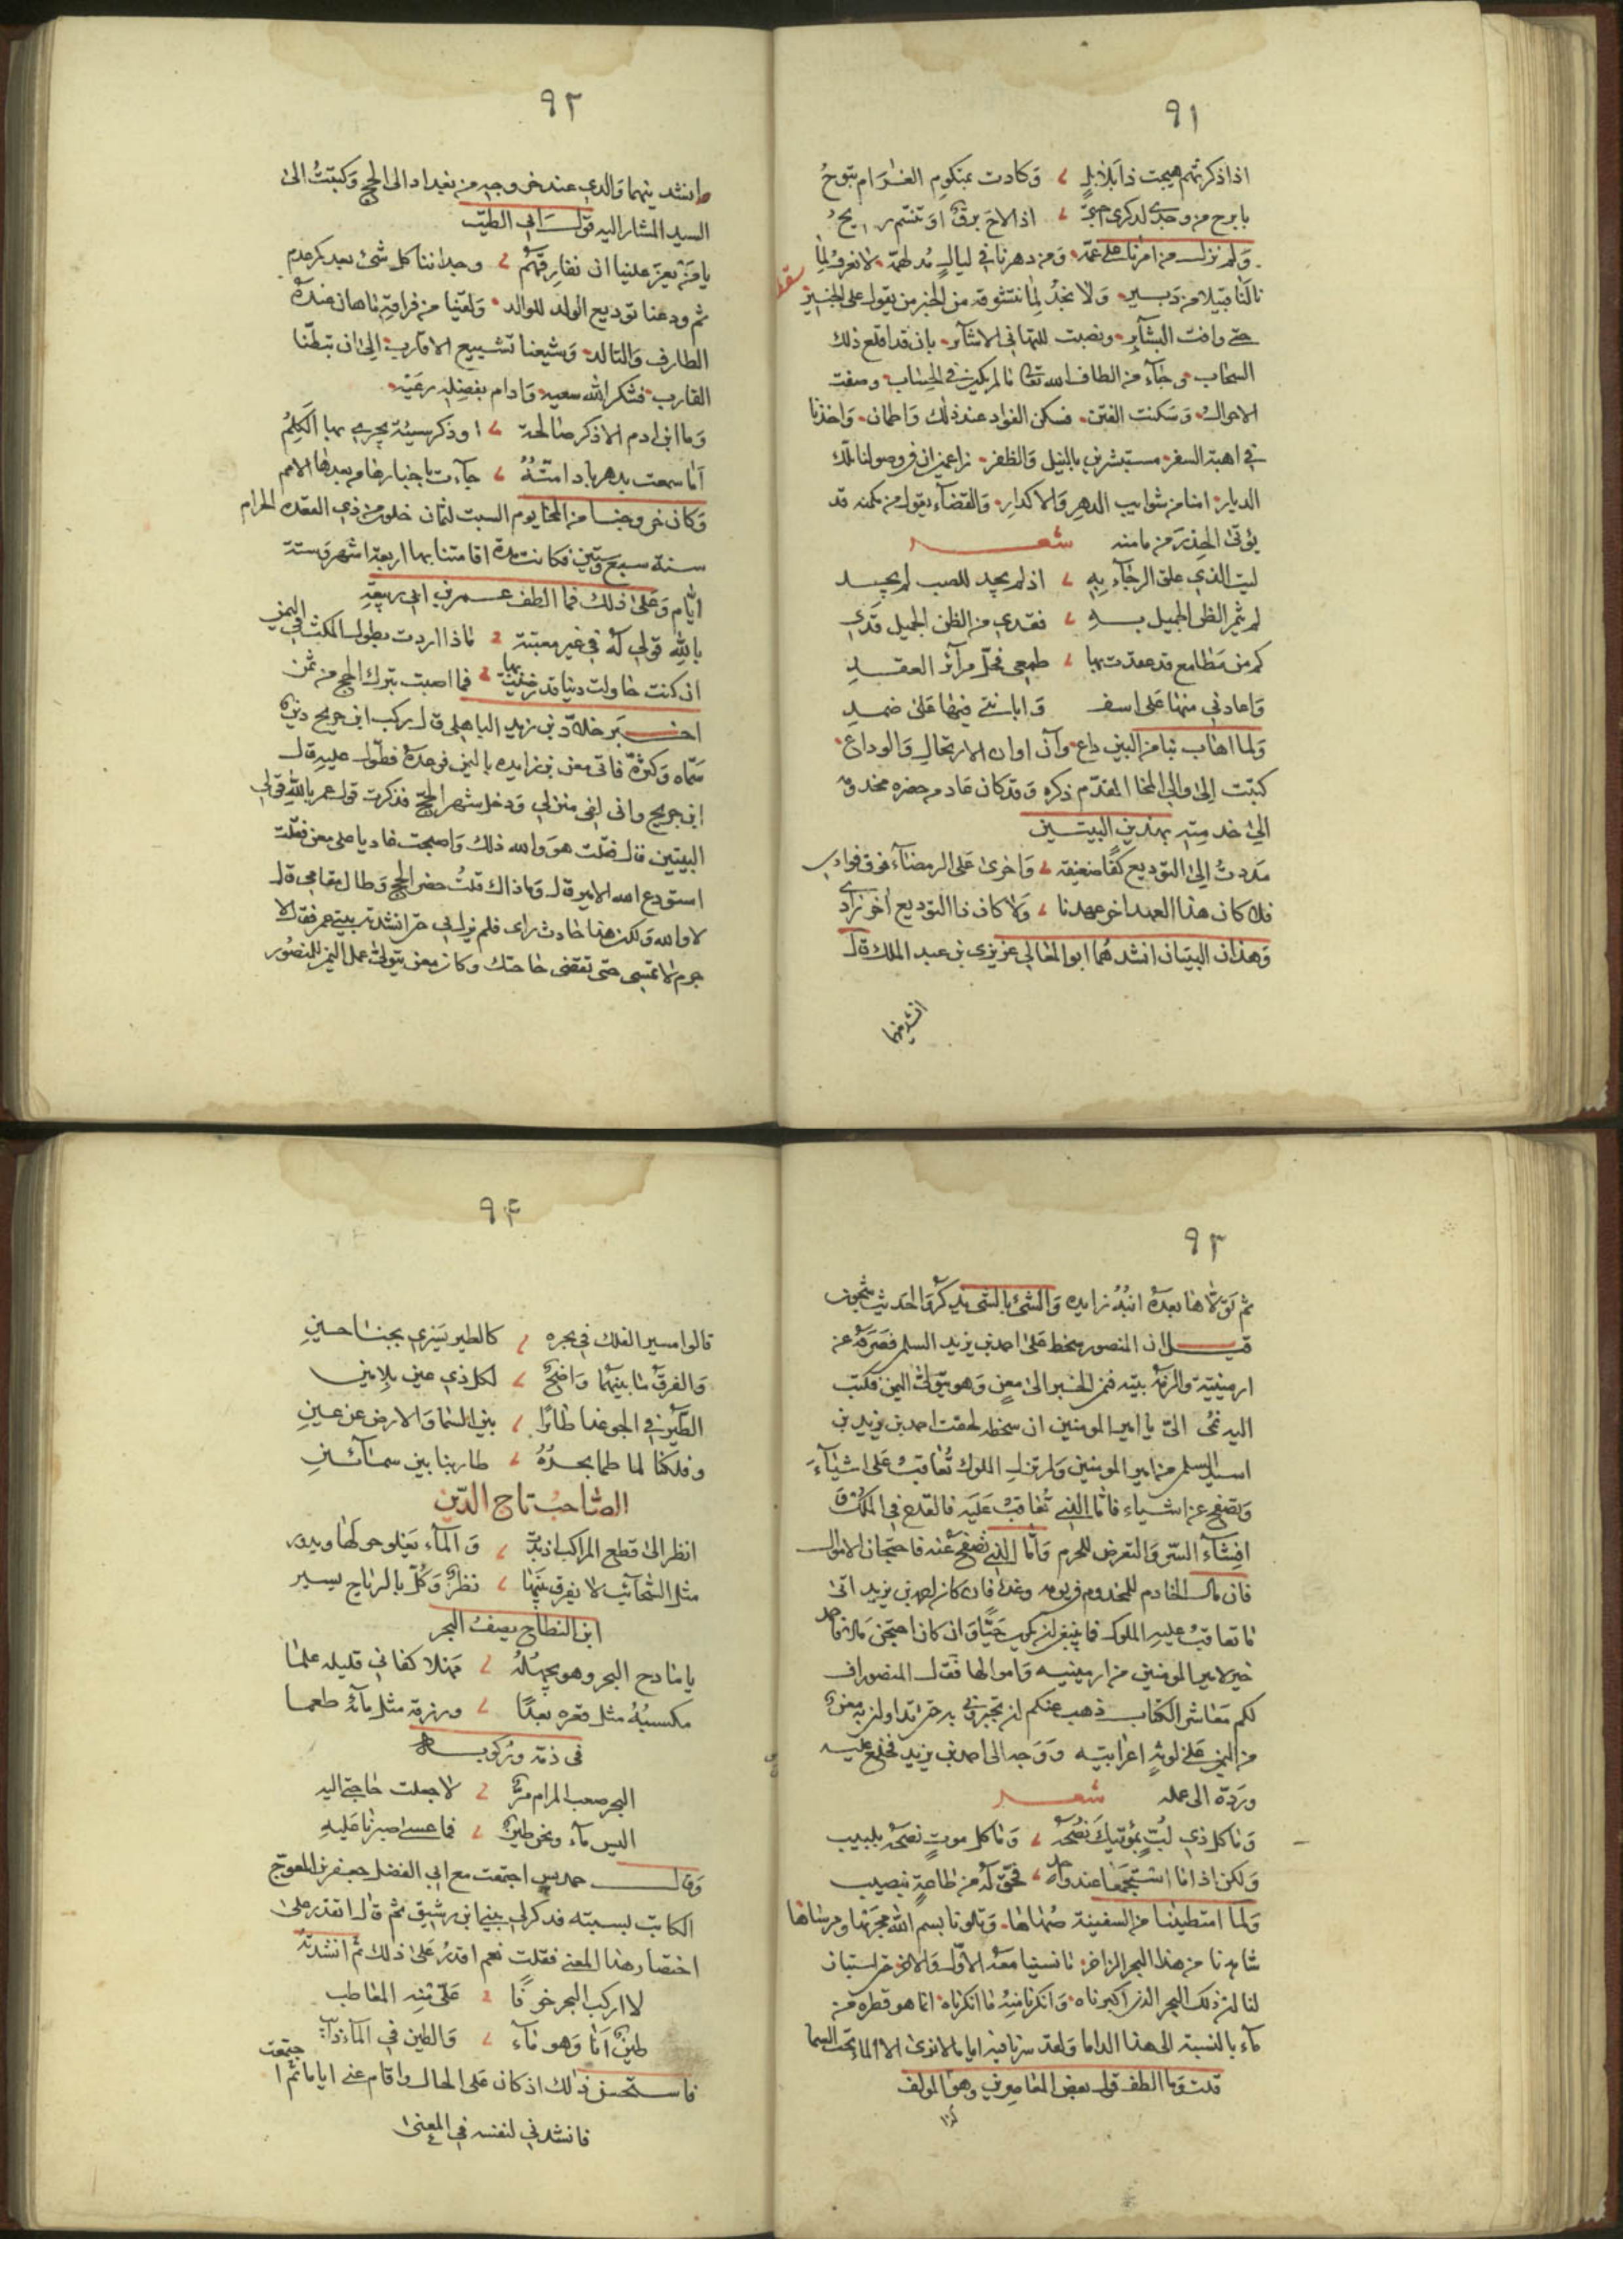 ٩١
اذا ذكرتهم هيجت ذا بلابل وكادت بمكتوم الغرام تبوح
يا برح من وجدي لذكرى احبة اذا لاح برق او تنسم ريح
ولم نزل من امرنا على غمة ومن دهرنا في ليال مدلهمة لا نعرف لما
نالنا قبيلا من دبير ولا نجد لما نتشوقه من الخبر من يقول على الخبير
حتى وافت البشاير ونصبت للتهاني الاشاير بان قد اقلع ذلك
السحاب وجاء من الطاف الله تعالى ما لم يكن في الحساب وصفت
الاحوال وسكنت الفتن فسكن الفواد عند ذلك واطمان واخذنا
في اهبة السفر مستبشرين بالنيل والظفر زاعمين ان في وصولنا تلك
الديار امنا من شوايب الدهر والاكدار والقضاء يقول من مكمنه قد
يوتى الحذر من مامنه شعر
ليت الذي علق الرجاء به اذ لم يجد للصب لم يجد
لم يثمر الظن الجميل به فقدي من الظن الجميل قدي
كم من مطامع قد عقدت بها طمعي فحل مرائر العقد
واعادني منها على اسف واباتني فيها على ضمد
ولما اهاب بنا من البين داع وآن اوان الارتحال والوداع
كتبت الى والي المخا المقدم ذكره وقد كان عادم حضره مخدومه
الى خدمته بهذين البيتين
مددت الى التوديع كفا ضعيفة واخرى على الرمضاء فوق فوادي
فلا كان هذا العهد اخر عهدنا ولا كان ذا التوديع اخر زادي
وهذان البيتان انشدهما ابو المعالي عزيزي بن عبد الملك قال
انشدنيهما
٩٢
وانشدنيهما والدي عند خروجه من بغداد الى الحج وكتبت الى
السيد المشار اليه قول ابي الطيب
يا من يعز علينا ان نفارقهم وجداننا كل شئ بعدكم عدم
ثم ودعنا توديع الولد للوالد ولقينا من فراقه ما هان عنده
الطارف والتالد وشيعنا تشييع الاقارب الى ان تبطنا
القارب فشكر الله سعيه وادام بفضله رعيه
وما ابن ادم الا ذكر صالحة او ذكر سيئة يجري بها الكلم
اما سمعت بدهر باد امته جاءت باخبارها من بعدها الامم
وكان خروجنا من المخا يوم السبت لثمان خلون من ذي القعدة الحرام
سنة سبع وستين فكانت مدة اقامتنا بها اربعة اشهر وستة
ايام وعلى ذلك فما الطف عمر بن ابي ربيعة
بالله قولي له في غير معتبة ماذا اردت بطول المكث في اليمن
ان كنت حاولت دنيا قد رضيت بها فما اصبت بترك الحج من ثمن
اخبر خلاد بن يزيد الباهلي قال ركب ابن جريج دين
سماه وكثره فاتى معن بن زايده باليمن فوعده فطول عليه قال
ابن جريج واني لفي منزلي ودخل شهر الحج فذكرت قول عمر بالله قولي
البيتين قال فقلت هو والله ذلك واصبحت غاديا على معن فقلت
استودع الله الامير قال وماذاك قلت حضر الحج وطال مقامي قال
لا والله ولكن هذا حادث راي فلم يزل بي حتى انشدته بيتي عمر فقال لا
جرم لا تمسي حتى تقضى حاجتك وكان معن يتولى عمل اليمن للمنصور
٩٣
ثم تولاها بعده ابنه زايده والشئ بالشئ يذكر والحديث شجون
قيل ان المنصور سخط على احمد بن يزيد السلمي فصرفه عن
ارمينية والزمه بيته فنمى الخبر الى معن وهو يتولى اليمن فكتب
اليه نمى الي يا امير المومنين ان سخطه لحقت احمد بن يزيد بن
اسيد السلمي من امير المومنين ولم تزل الملوك تعاقب على اشياء
وتصفح عن اشياء فاما التي تعاقب عليه فالقدح في الملك و
افشاء السر والتعرض للحرم واما التي تصفح عنه فاحتجان الاموال
فان مال الخادم للمخدوم وعنده فان كان احمد بن يزيد اتى
ما تعاقب عليه الملوك فما ينبغي ان يكون حيا وان كان احتجن مالا فاحمد
خير لامير المومنين من ارمينيه واموالها فقال المنصور اف
لكم معاشر الكتاب ذهب عنكم ان تخبروني به حتى تداولني به معن
من اليمن على لوثه اعرابيته ووجه الى احمد بن يزيد فخلع عليه
ورده الى عمله شعر
وما كل ذي لب بموتيك نصحه وما كل موت نصحه بلبيب
ولكن اذا ما استجمعا عند واحد فحق له من طاعة بنصيب
ولما امتطينا من السفينة صهاها وتلونا بسم الله مجريها ومرساها
شاهدنا من هذا البحر الزاخر ما نسينا معه الاول والاخر حتى استبان
لنا ان ذلك البحر الذي اكبرناه وانكرنا منه ما انكرناه انما هو قطرة من
ماء بالنسبة الى هذا الداما ولقد سرنا فيه اياما لا نرى الا الماء تحت السما
قلت وما الطف قول بعض المعاصرين وهو المولف
٩٤
قالوا مسير الفلك في بحره كالطير يسري بجناحين
والفرق ما بينهما واضح لكل ذي عين بلا مين
الطير في الجو غدا طائرا بين السما والارض عن عين
وفلكنا لما طما بحره طار بنا بين سمائين
الصاحب تاج الدين
انظر الى قطع المراكب اذ بدت والماء يعلو حولها ويدور
مثل السحائب لا يفرق بينها نظر وكل بالرياح يسير
ابن النطاح يصف البحر
يا مادح البحر وهو يجهله مهلا كفاني قليله علما
مكسبه مثل قعره بعدا ورزقه مثل مائه طعما
في ذمه وركوبه
البحر صعب المرام مر لا جعلت حاجتي اليه
اليس ماء ونحن طين فما عسى صبرنا عليه
وقال حمديس اجتمعت مع ابي الفضل جعفر بن المعوج
الكاتب بسبته فذكر لي بيتي ابن رشيق ثم قال اتقدر على
اختصار هذا المعنى فقلت نعم اقدر على ذلك ثم انشدته
لا اركب البحر خوفا علي منه المعاطب
طين انا وهو ماء والطين في الماء ذائب
فاستحسن ذلك اذ كان على الحال واقام عني اياما ثم اجتمعت
فانشدني لنفسه في المعنى